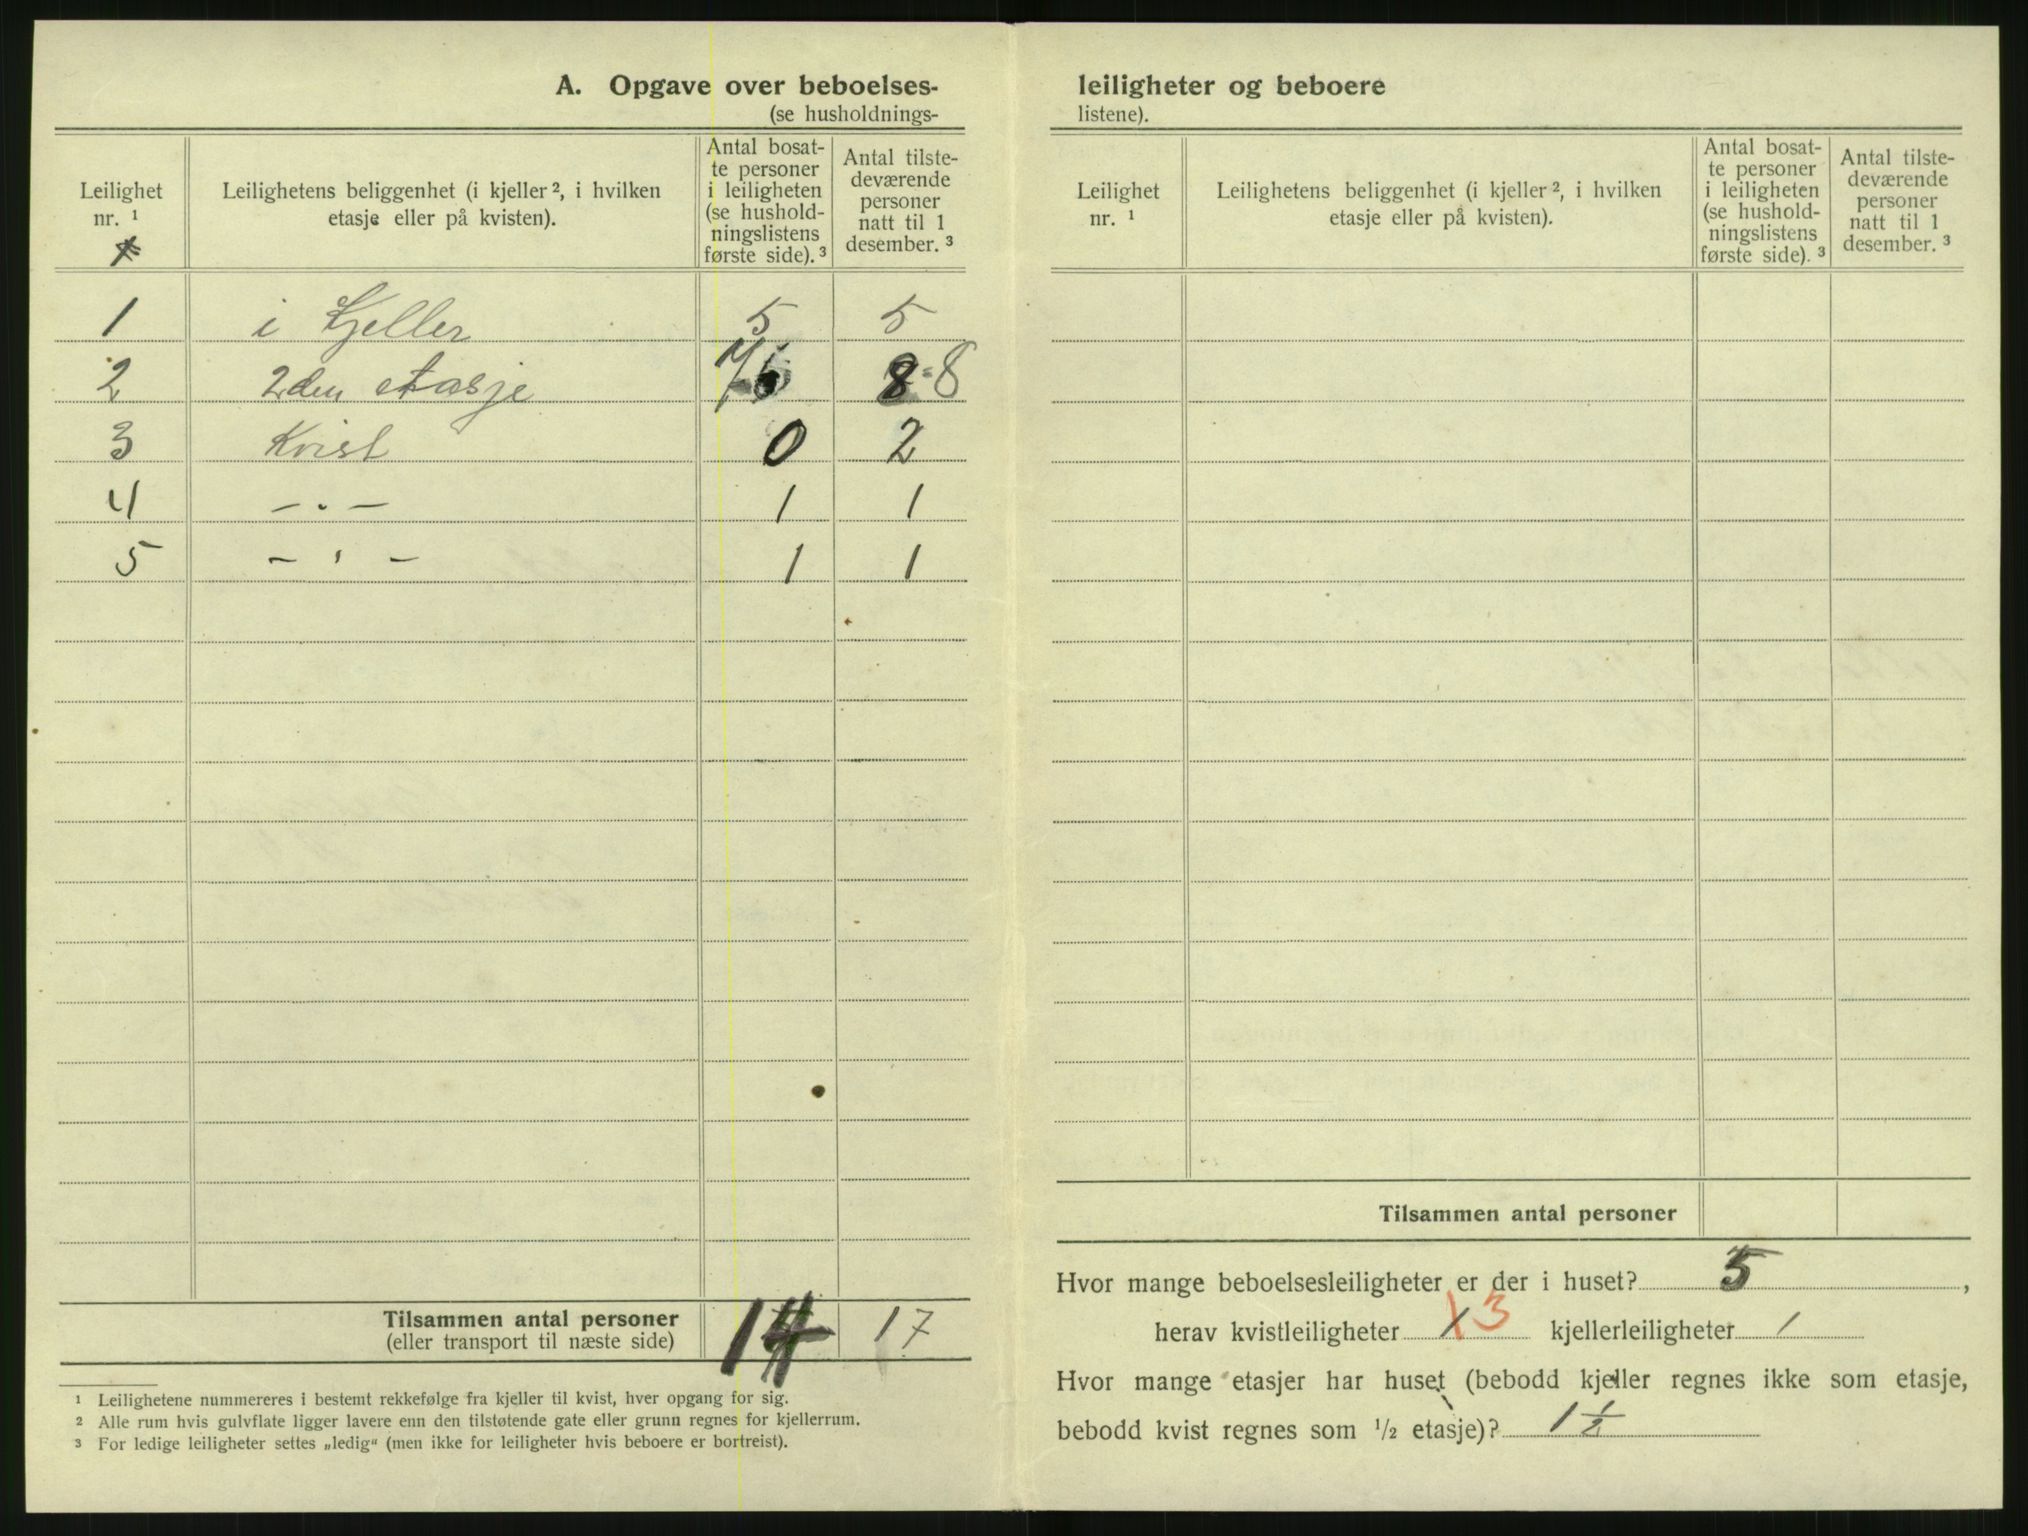 A. Opgave over beboelses-
(se husholdnings-
Leilighet nr. ¹
Leilighetens beliggenhet (i kjeller ², i hvilken etasje eller på kvisten).
Antal bosatte personer i leiligheten (se husholdningslistens første side). ³
Antal tilstedeværende personer natt til 1 desember. ³
1 i Kjeller 5 5
2 2den etasje 7 8 8
3 Kvist 0 2
4 - " - 1 1
5 - " - 1 1
Tilsammen antal personer 14 17
(eller transport til næste side)
¹ Leilighetene nummereres i bestemt rekkefølge fra kjeller til kvist, hver opgang for sig.
² Alle rum hvis gulvflate ligger lavere enn den tilstøtende gate eller grunn regnes for kjellerrum.
³ For ledige leiligheter settes „ledig“ (men ikke for leiligheter hvis beboere er bortreist).
leiligheter og beboere
listene).
Leilighet nr. ¹
Leilighetens beliggenhet (i kjeller ², i hvilken etasje eller på kvisten).
Antal bosatte personer i leiligheten (se husholdningslistens første side). ³
Antal tilstedeværende personer natt til 1 desember. ³
Tilsammen antal personer
Hvor mange beboelsesleiligheter er der i huset? 5,
herav kvistleiligheter 3 kjellerleiligheter 1
Hvor mange etasjer har huset (bebodd kjeller regnes ikke som etasje,
bebodd kvist regnes som 1/2 etasje)? 1 1/2